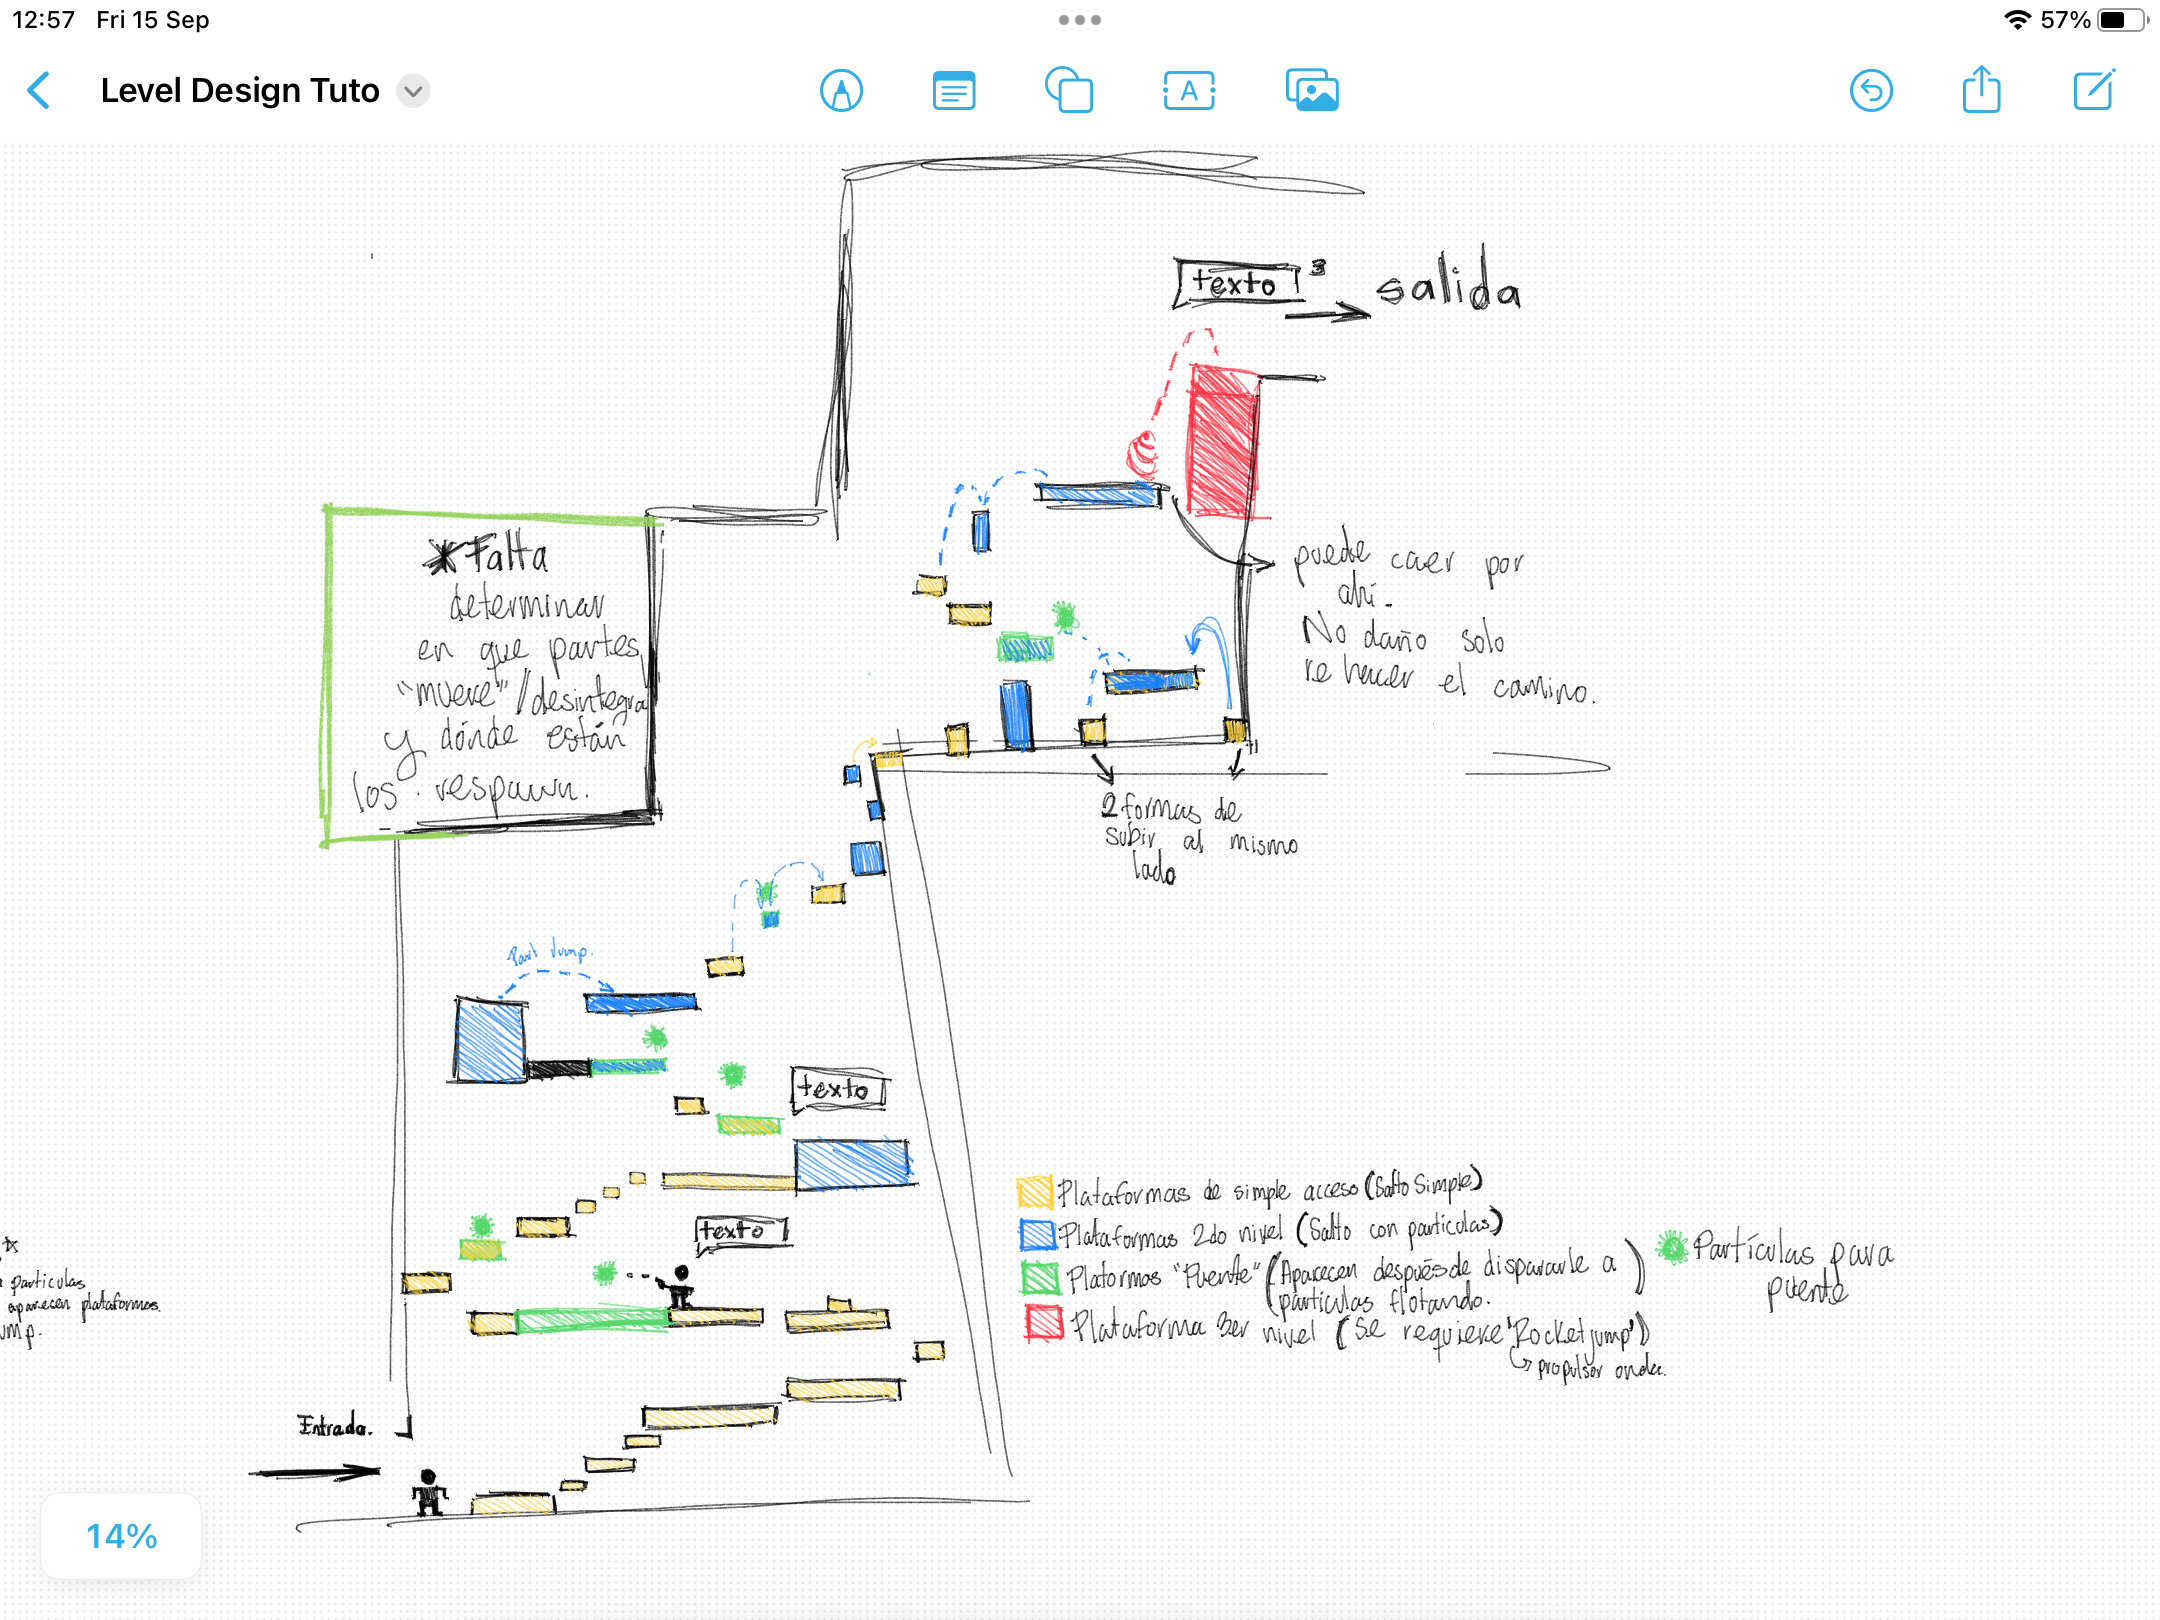 12:57 Fri 15 Sep
57%
Level Design Tuto
A
texto 3
salida
*Falta
determinar
en que partes
"muere"/desintegra
y dónde están
los respawn.
puede caer por
ahí.
No daño solo
re hacer el camino.
2 formas de
subir al mismo
lado
Part Jump.
texto
texto
Plataformas de simple acceso (Salto Simple)
Plataformas 2do nivel (Salto con partículas)
Plataformas "Puente" (Aparecen después de dispararle a
partículas flotando.)
Plataforma 3er nivel (se requiere 'Rocket jump')
propulsor onda.
Partículas para
puente
particulas
aparecen plataformas.
ump.
Entrada.
14%